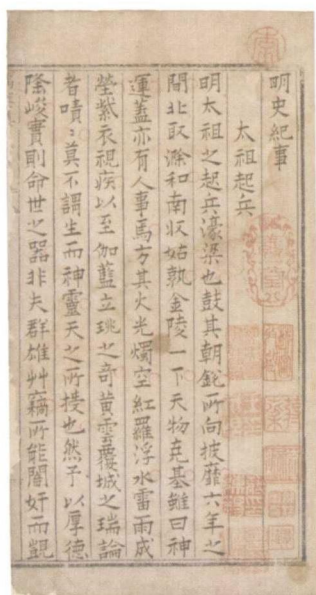 明史紀事
太祖起兵
明太祖之起兵濠梁也鼓其朝銳所向披靡六年之
間北取滁和南收姑孰金陵一下天物克基雖曰神
運蓋亦有人事焉方其火光燭空紅羅浮水雷雨成
瑩紫衣視疾以至伽藍立珓之奇黃雲覆城之瑞論
者嘖〻莫不謂生而神靈天之所授也然予以厚德
隆峻實則命世之器非夫群雄艸竊所能闇奸而覬